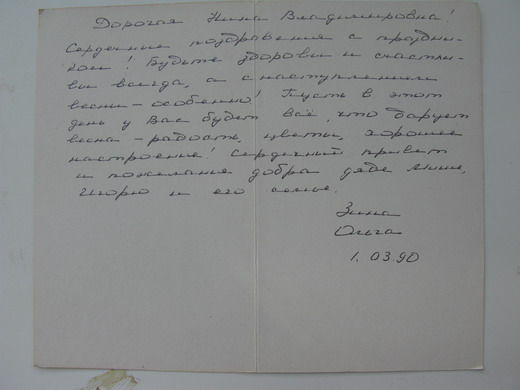 Дорогая Нина Владимировна!
Сердечные поздравения с праздни-
ком! Будьте здоровы и счастли-
вы всегда, а с наступлением
весны - особенно! Пусть в этот
день у Вас будет всё, что дарует
весна - радость, цветы, хорошее
настроение! Сердечный привет
и пожелания добра дяде Мише,
Игорю и его семье.
Зина
Ольга
1.03.90